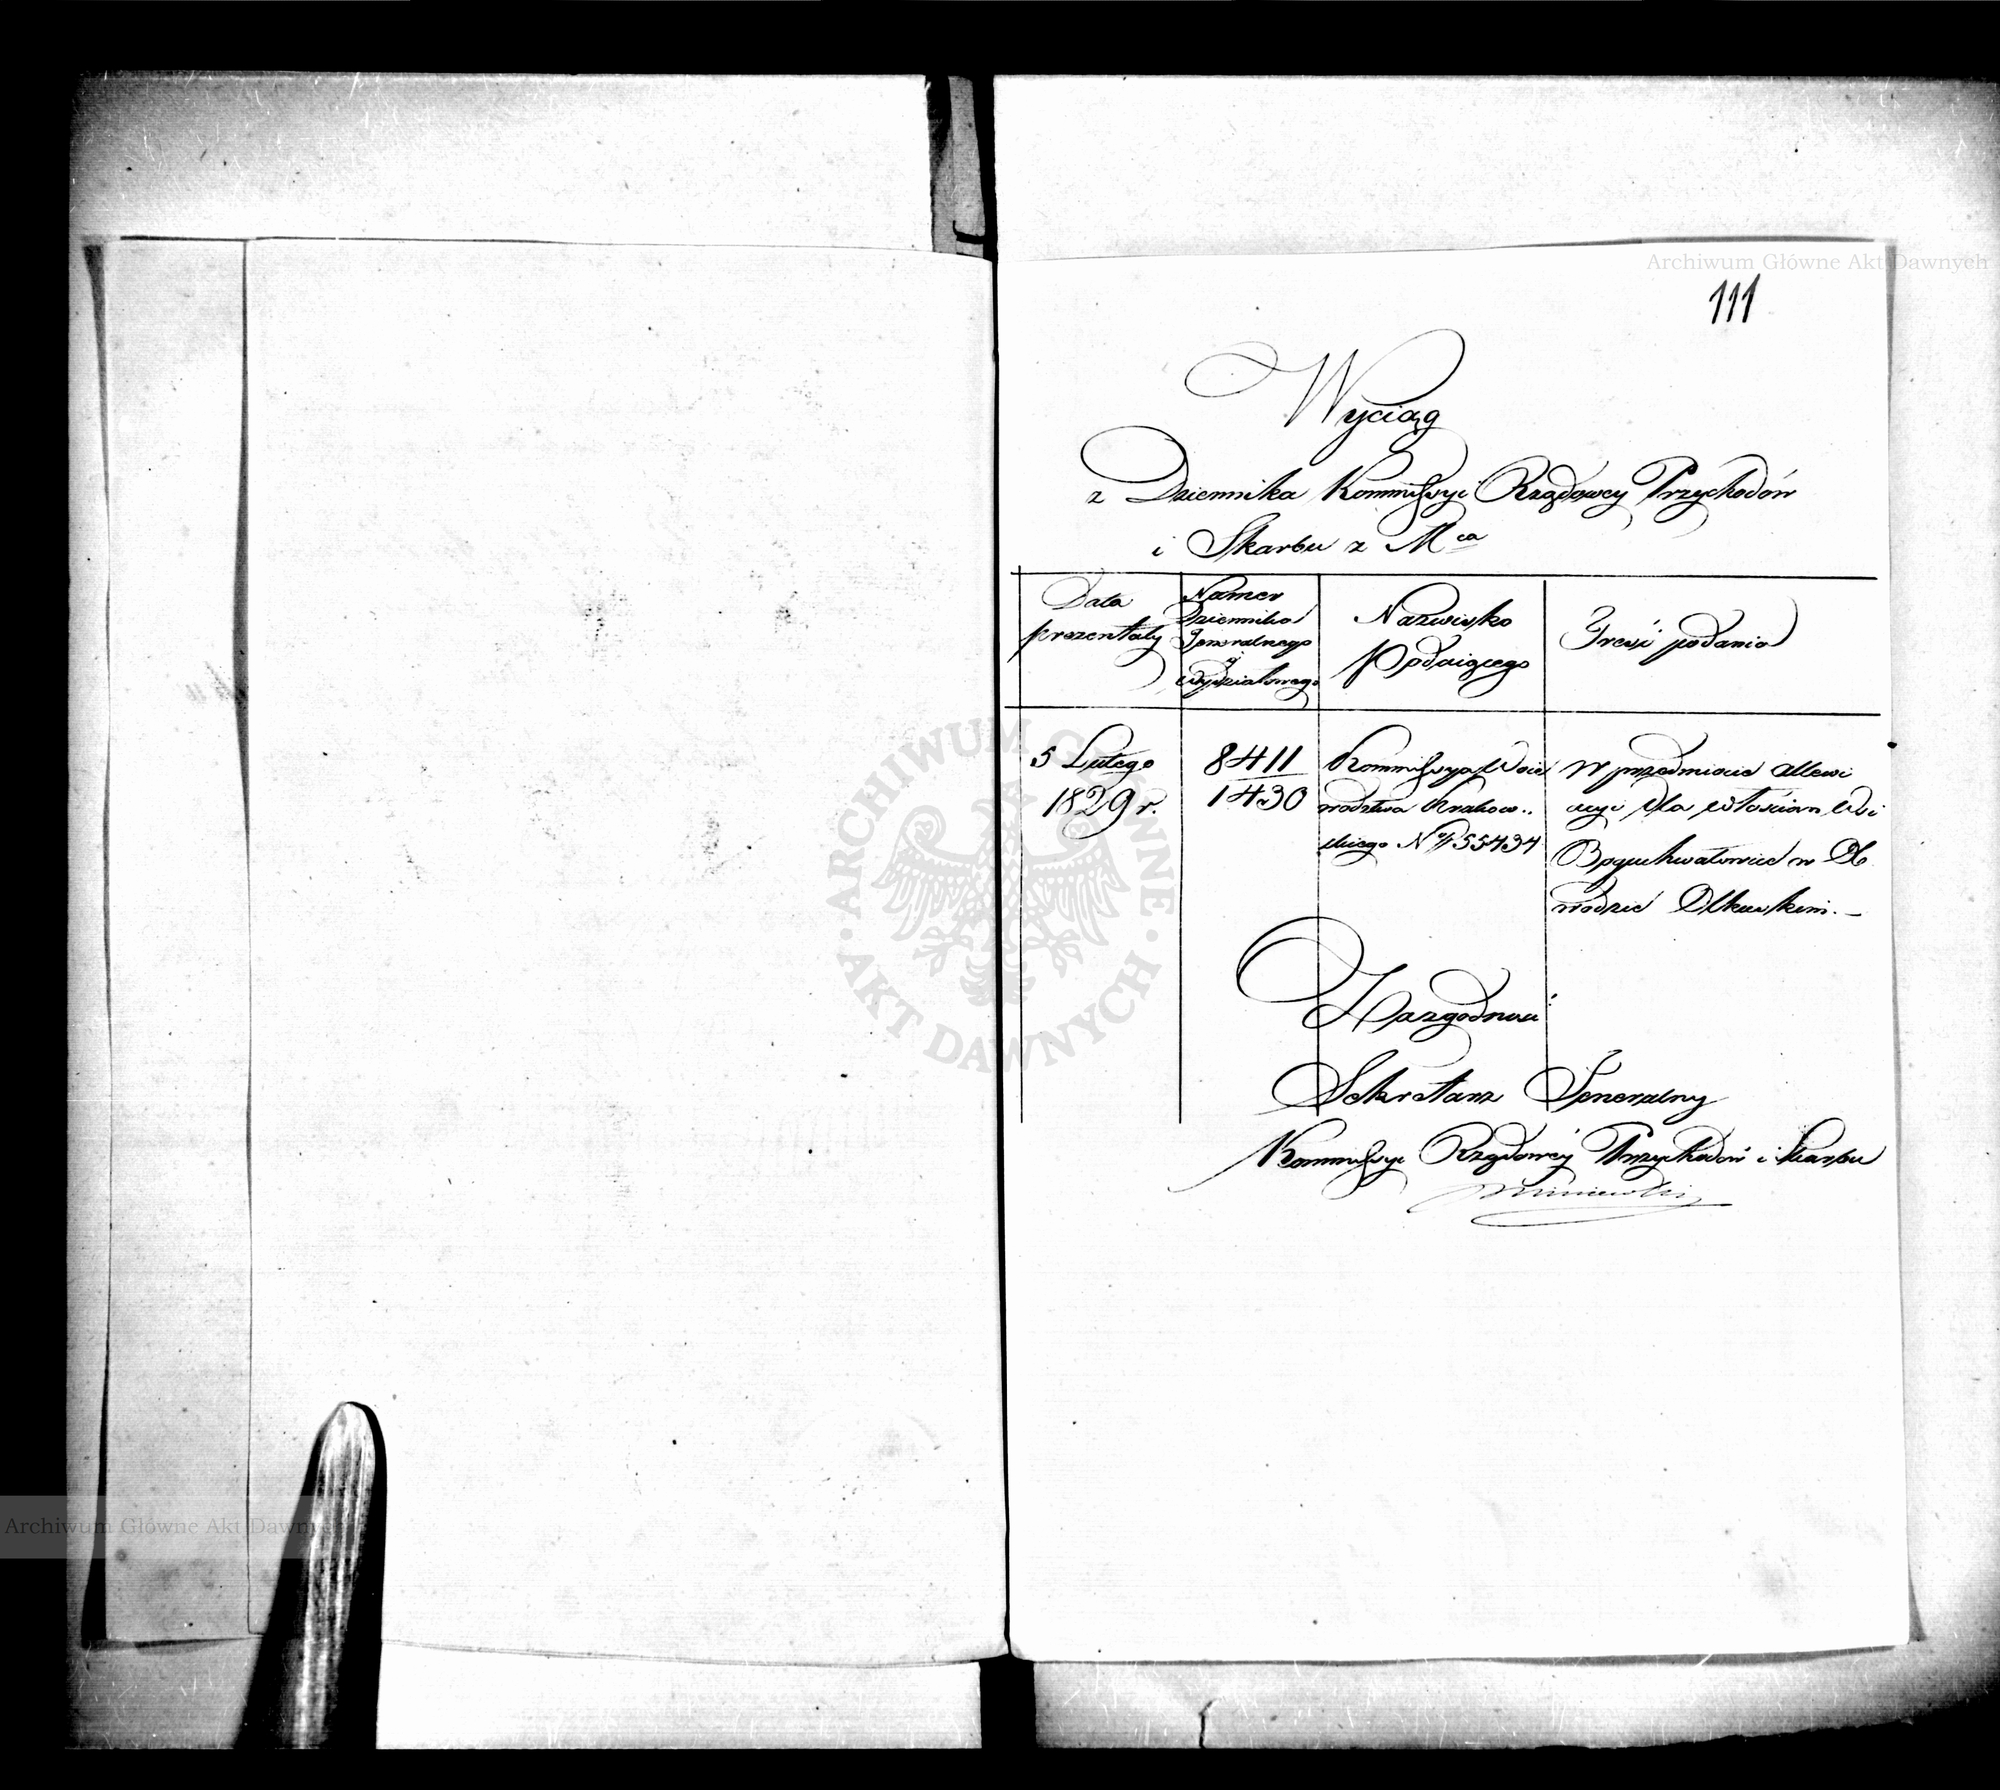 Archiwum Główne Akt Dawnych
111
Wyciąg
z Dziennika Kommissyi Rządowey Przychodów
i Skarbu z Mca
Data
prezentaty
Numer
Dziennika
Generalnego
i
Wydziałowego
Nazwisko
Podaiącego
Treść podania
5 Lutego
1829 r.
8411
1430
Kommissya Woie
wodztwa Krakow..
skiego No 55434
W przedmiocie allewi
acyi dla włościan Wsi
Boguchwałowice w Ob
wodzie Olkuskim. –
Za zgodność
Sekretarz Generalny
Kommissyi Rządowéy Przychodów i Skarbu
ARCHIWUM GŁÓWNE
AKT DAWNYCH
Archiwum Główne Akt Dawnych